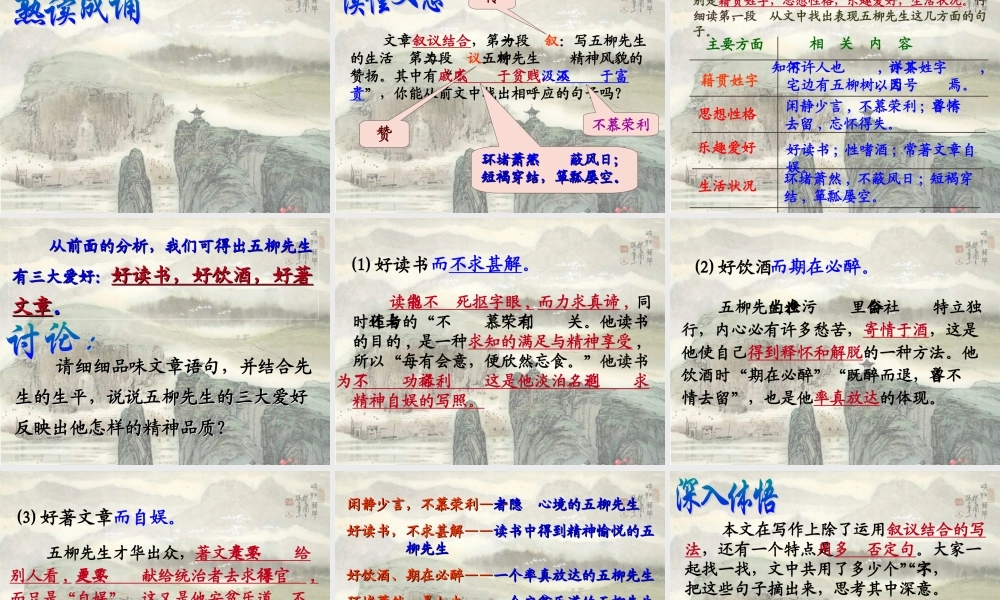 熟读成诵
读懂大意
文章叙议结合，第一段为叙：写五柳先生
的生活 第二段为议：五柳先生 精神风貌的
赞扬。其中有 戚戚 于贫贱 汲汲 于富
贵”，你能从前文中找出相呼应的句子吗？
赞
不慕荣利
环堵萧然 蔽风日；
短褐穿结，箪瓢屡空。
别是籍贯姓字，思想性格，乐趣爱好，生活状况。
细读第一段 从文中找出表现五柳先生这几方面的句
子。
主要方面 相关内容
籍贯姓字
知何许人也 ，详其姓字 ，
宅边有五柳树以为号 焉。
思想性格
闲静少言，不慕荣利；
去留，忘怀得失。
乐趣爱好
好读书；性嗜酒；常著文章自
娱。
生活状况
环堵萧然，不蔽风日；短褐穿
结，箪瓢屡空。
从前面的分析，我们可得出五柳先生
有三大爱好：好读书，好饮酒，好著
文章。
讨论：
请细细品味文章语句，并结合先
生的生平，说说五柳先生的三大爱好
反映出他怎样的精神品质？
(1) 好读书而不求甚解。
读书 不 死抠字眼，而力求真谛，同
时 的“不 慕荣利 关。他读书
的目的，是一种求知的满足与精神享受，
所以“每有会意，便欣然忘食。”他读书
为 不 功 利 这是他淡泊名利 求
精神自娱的写照。
(2) 好饮酒而期在必醉。
五柳先生 污 里 社 特立独
行，内心必有许多愁苦，寄情于酒，这是
他使自己得到释怀和解脱的一种方法。他
饮酒时“期在必醉”“既醉而退， 不
情去留”，也是他率真放达的体现。
(3) 好著文章而自娱。
五柳先生才华出众，著文章 要 给
别人看， 要 献给统治者去求得官 ，
而只是“自娱”，这又是他安贫乐道、不
闲静少言，不慕荣利—者隐 心境的五柳先生
好读书，不求甚解——读书中得到精神愉悦的五
柳先生
好饮酒、期在必醉——一个率真放达的五柳先生
深入体悟
本文在写作上除了运用叙议结合的写
法，还有一个特点 是多 否定句。大家一
起找一找，文中共用了多少个“ 字，
把这些句子摘出来，思考其中深意。